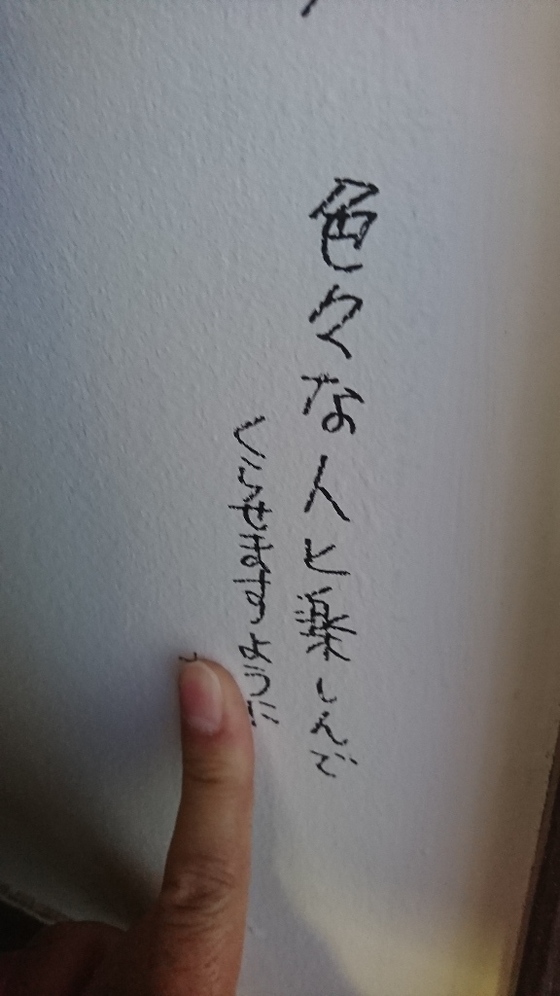 色々な人と楽しんで
くらせますように